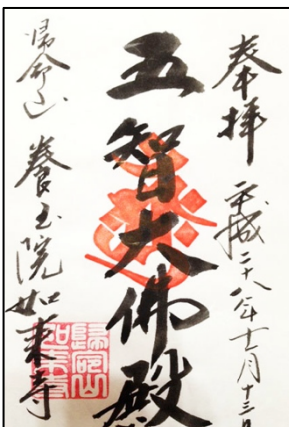 奉拝
平成二十八年十二月十三日
五智大佛殿
帰命山
養玉院如来寺
歸命山
如来寺